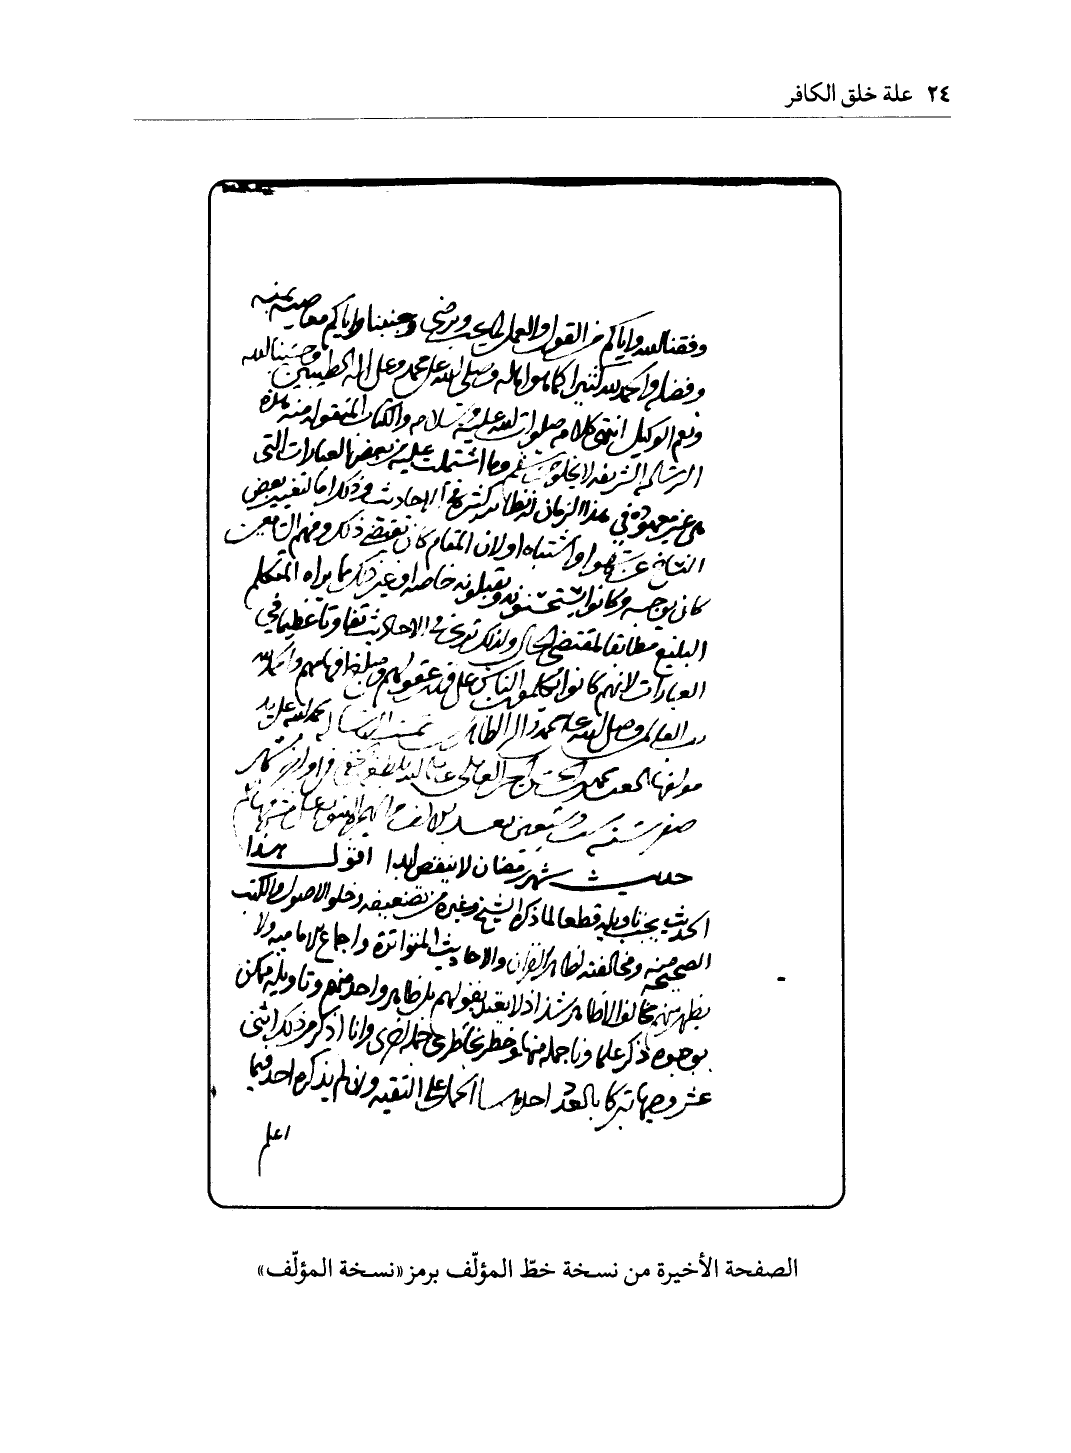 ٢٤ علة خلق الكافر
وفقنا الله واياكم من القول والعمل لما يحب ويرضى وجنبنا واياكم معاصيه بمنه
وفضله والحمد لله كثيرا كما هو اهله وصلى الله على محمد وعلى اله الطيبين وحسبنا الله
ونعم الوكيل انتهى كلامه صلوات الله عليه وسلامه والكتاب المنقول منه هذه
الرسالة الشريفة لا يخلو من سقم وما اشتملت عليه من بعض العبارات التي
هي غير معهودة في هذا الزمان له نظاير كثيرة في الاحاديث وذلك اما لتغيير بعض
النساخ عن سهو او اشتباه او لان المقام كان يقتضي ذلك وفهم السامعين
كان يوجبه وكانوا يستحسنونه ويقبلونه خاصة او غير ذلك مما يراه المتكلم
البليغ مطابقا لمقتضى الحال ولذلك ترى في الاحاديث تفاوتا عظيما في
العبارات لانهم كانوا يكلمون الناس على قدر عقولهم ومبلغ افهامهم والحمد لله
رب العالمين وصلى الله على محمد واله الطاهرين تمت الرسالة بحمد الله على يد
مولفها محمد بن الحسن الحر العاملي
صفر سنة ست وسبعين بعد الالف
حديث شهر رمضان لا ينقص ابدا اقول هذا
الحديث يجب تاويله قطعا لما ذكره الشيخ وغيره من تضعيفه وخلو الاصول والكتب
الصحيحة منه ومخالفته لظاهر القران والاحاديث المتواترة واجماع الامامية ولا
يظهر منهم مخالف الا ظاهر شذاذ لا يعتد بقولهم بل ظاهر واحد منهم وتاويله ممكن
بوجوه ذكر علماونا جملة منها وخطر بخاطري جملة اخرى وانا اذكر من ذلك اثني
عشر وجها تبركا بالعدد احدها الحمل على التقية وان لم يذكره احد فيما
اعلم
الصفحة الأخيرة من نسخة خطّ المؤلّف برمز «نسخة المؤلّف»